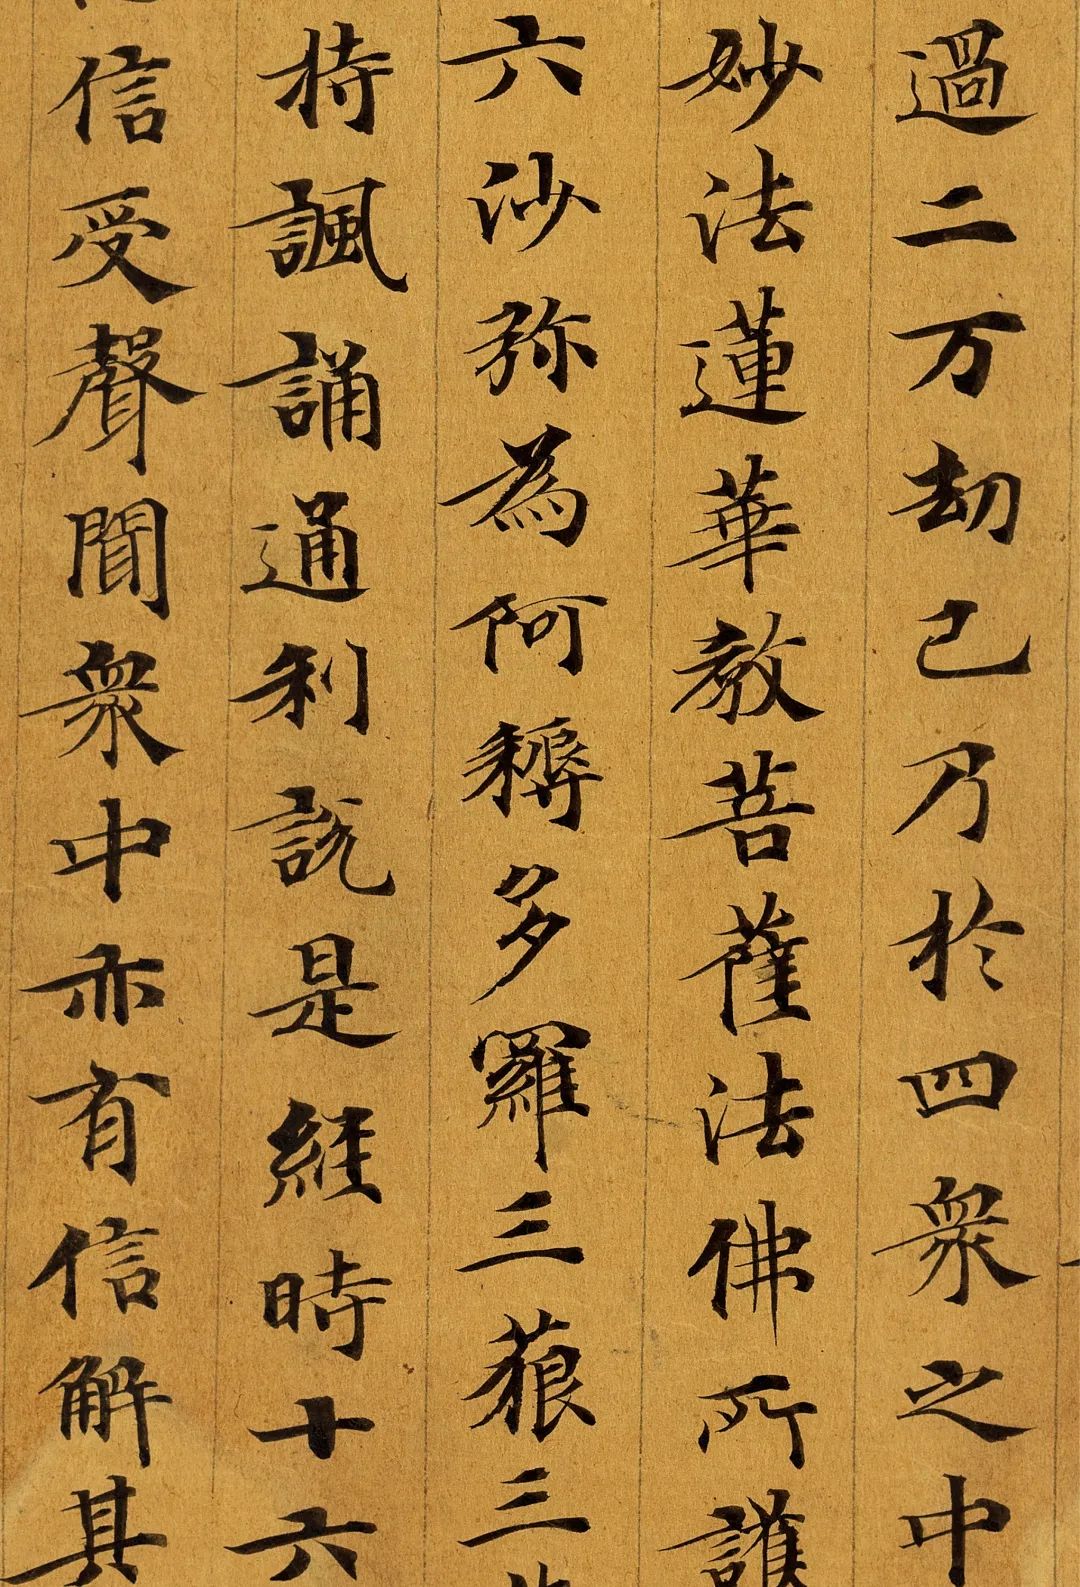 過二万劫已乃於四衆之中
妙法蓮華教菩薩法佛所護
六沙弥為阿耨多羅三藐三
持諷誦通利說是經時十六
信受聲聞衆中亦有信解其